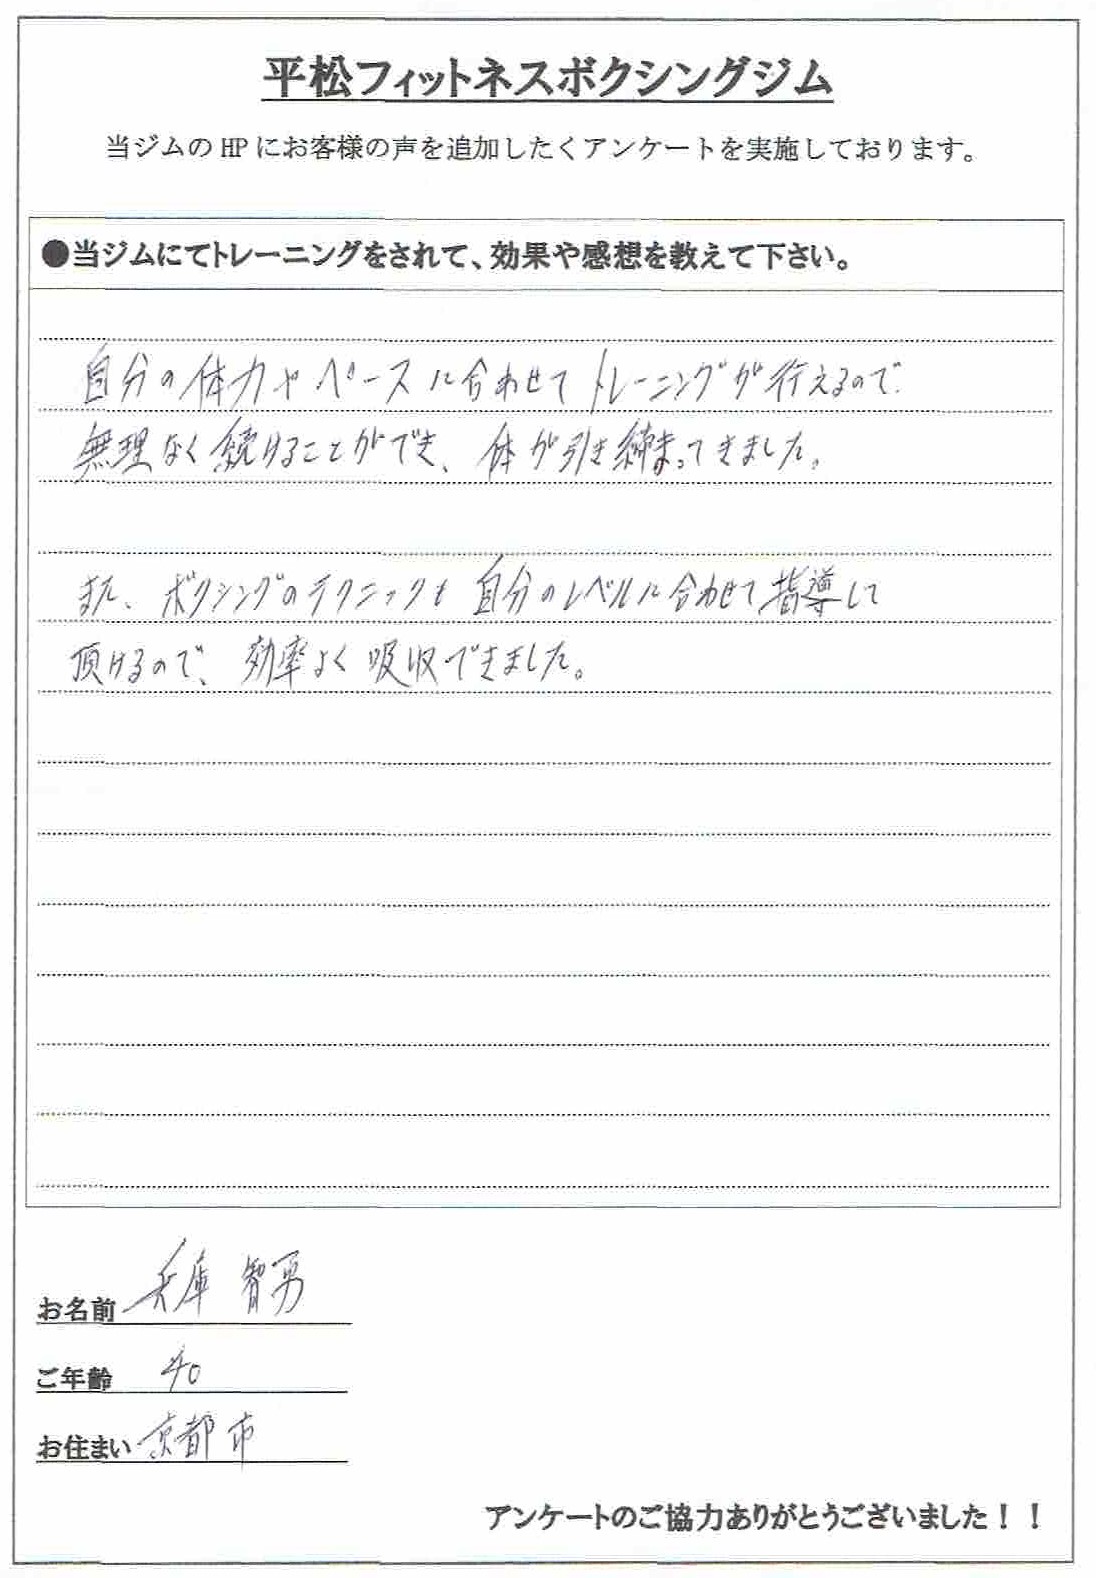 平松フィットネスボクシングジム
当ジムの HP にお客様の声を追加したくアンケートを実施しております。
●当ジムにてトレーニングをされて、効果や感想を教えて下さい。
自分の体力やペースに合わせてトレーニングが行えるので
無理なく続けることができ、体が引き締まってきました。
また、ボクシングのテクニックも自分のレベルに合わせて指導して
頂けるので、効率よく吸収できました。
お名前 兵庫 智勇
ご年齢 40
お住まい 京都市
アンケートのご協力ありがとうございました！！